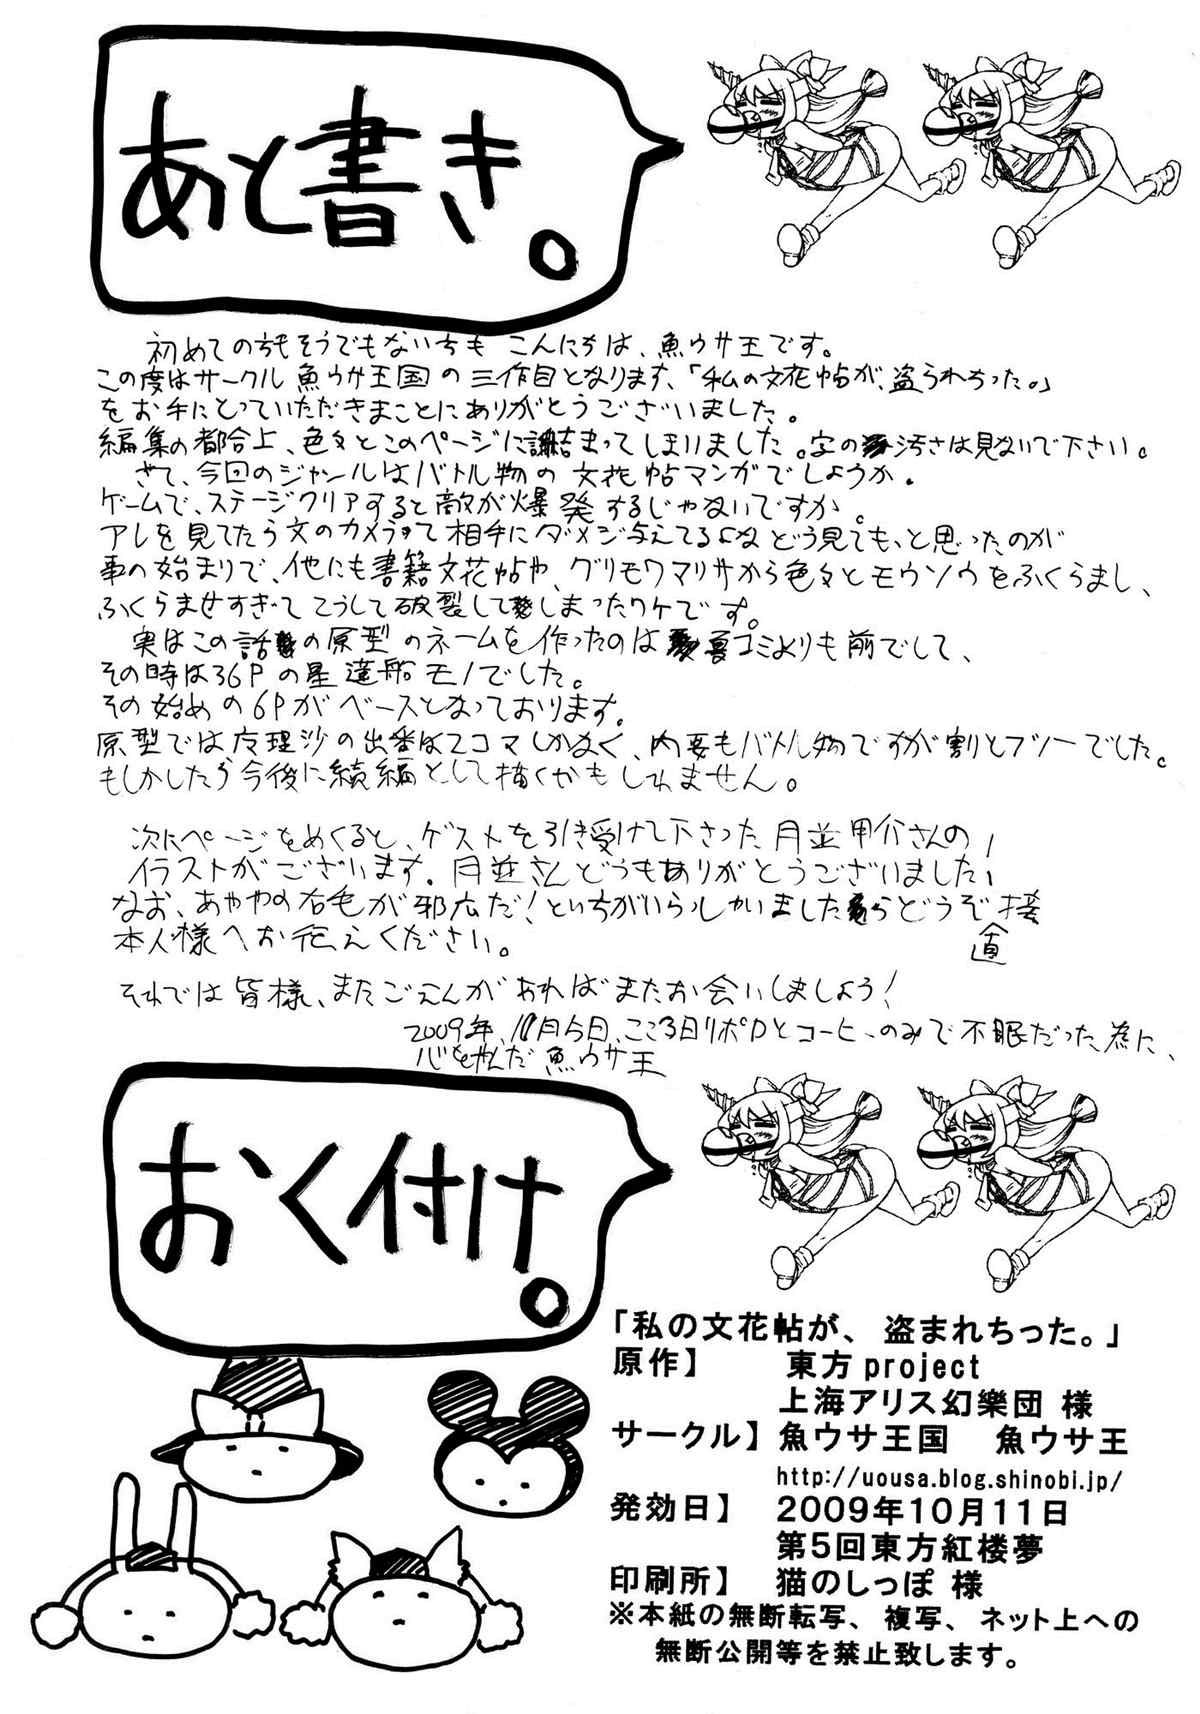 あと書き。
初めての方もそうでもない方も こんにちは、魚ウサ王です。
この度はサークル魚ウサ王国の三作目となります、「私の文花帖が、盗られちった。」
をお手にとっていただきまことにありがとうございました。
編集の都合上、色々とこのページに詰まってしまいました。字の汚さは見ないで下さい。
さて、今回のジャンルはバトル物の文花帖マンガでしょうか。
ゲームで、ステージクリアすると敵が爆発するじゃないですか。
アレを見てたら文のカメラって相手にダメージ与えてるよね どう見ても、と思ったのが
事の始まりで、他にも書籍文花帖や、グリモワマリサから色々とモウソウをふくらまし、
ふくらませすぎてこうして破裂してしまったワケです。
実はこの話の原型のネームを作ったのは夏コミよりも前でして、
その時は36Pの星蓮船モノでした。
その始めの6Pがベースとなっております。
原型では魔理沙の出番は2コマしかなく、内要もバトル物ですが割とフツーでした。
もしかしたら今後に続編として描くかもしれません。
次にページをめくると、ゲストを引き受けて下さった月並甲介さんの
イラストがございます。月並さんどうもありがとうございました!
なお、あややの右毛が邪広だ!という方がいらっしゃいましたらどうぞ直接
本人様へお伝えください。
それでは皆様、またごえんがあればまたお会いしましょう!
2009年、10月5日、ここ3日リポDとコーヒーのみで不眠だった為に、
心をやんだ 魚ウサ王
おく付け。
「私の文花帖が、盗まれちった。」
原作】 東方project
上海アリス幻樂団 様
サークル】 魚ウサ王国 魚ウサ王
http://uousa.blog.shinobi.jp/
発効日】 2009年10月11日
第5回東方紅楼夢
印刷所】 猫のしっぽ 様
※本紙の無断転写、複写、ネット上への
無断公開等を禁止致します。